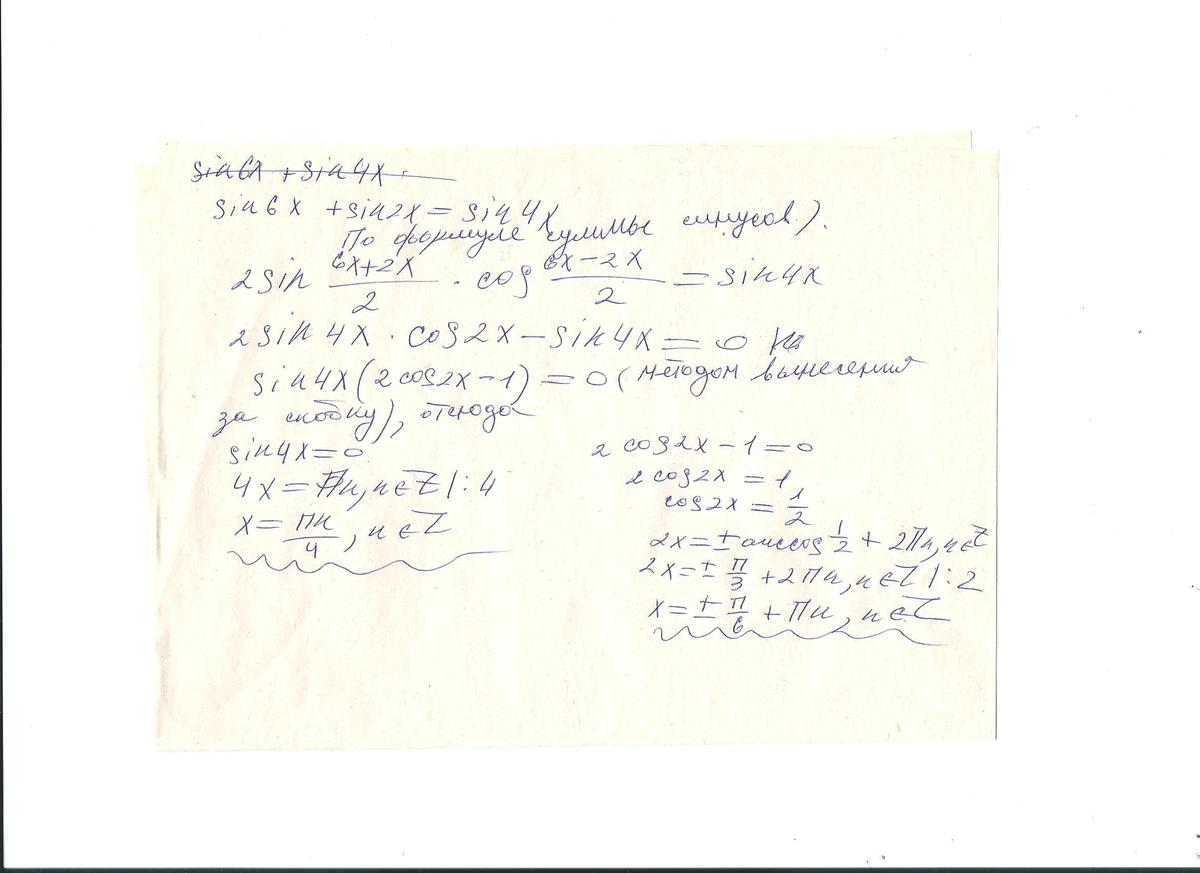 sin6x + sin4x
sin6x + sin2x = sin4x
По формуле суммы синусов).
2sin (6x+2x)/2 · cos (6x-2x)/2 = sin4x
2sin4x · cos2x - sin4x = 0
sin4x(2cos2x-1) = 0 (методом вынесения
за скобку), отсюда
sin4x=0
4x = Пn, n∈Z |:4
x = Пn/4, n∈Z
2cos2x - 1 = 0
2cos2x = 1
cos2x = 1/2
2x = ± arccos 1/2 + 2Пn, n∈Z
2x = ± П/3 + 2Пn, n∈Z |:2
x = ± П/6 + Пn, n∈Z